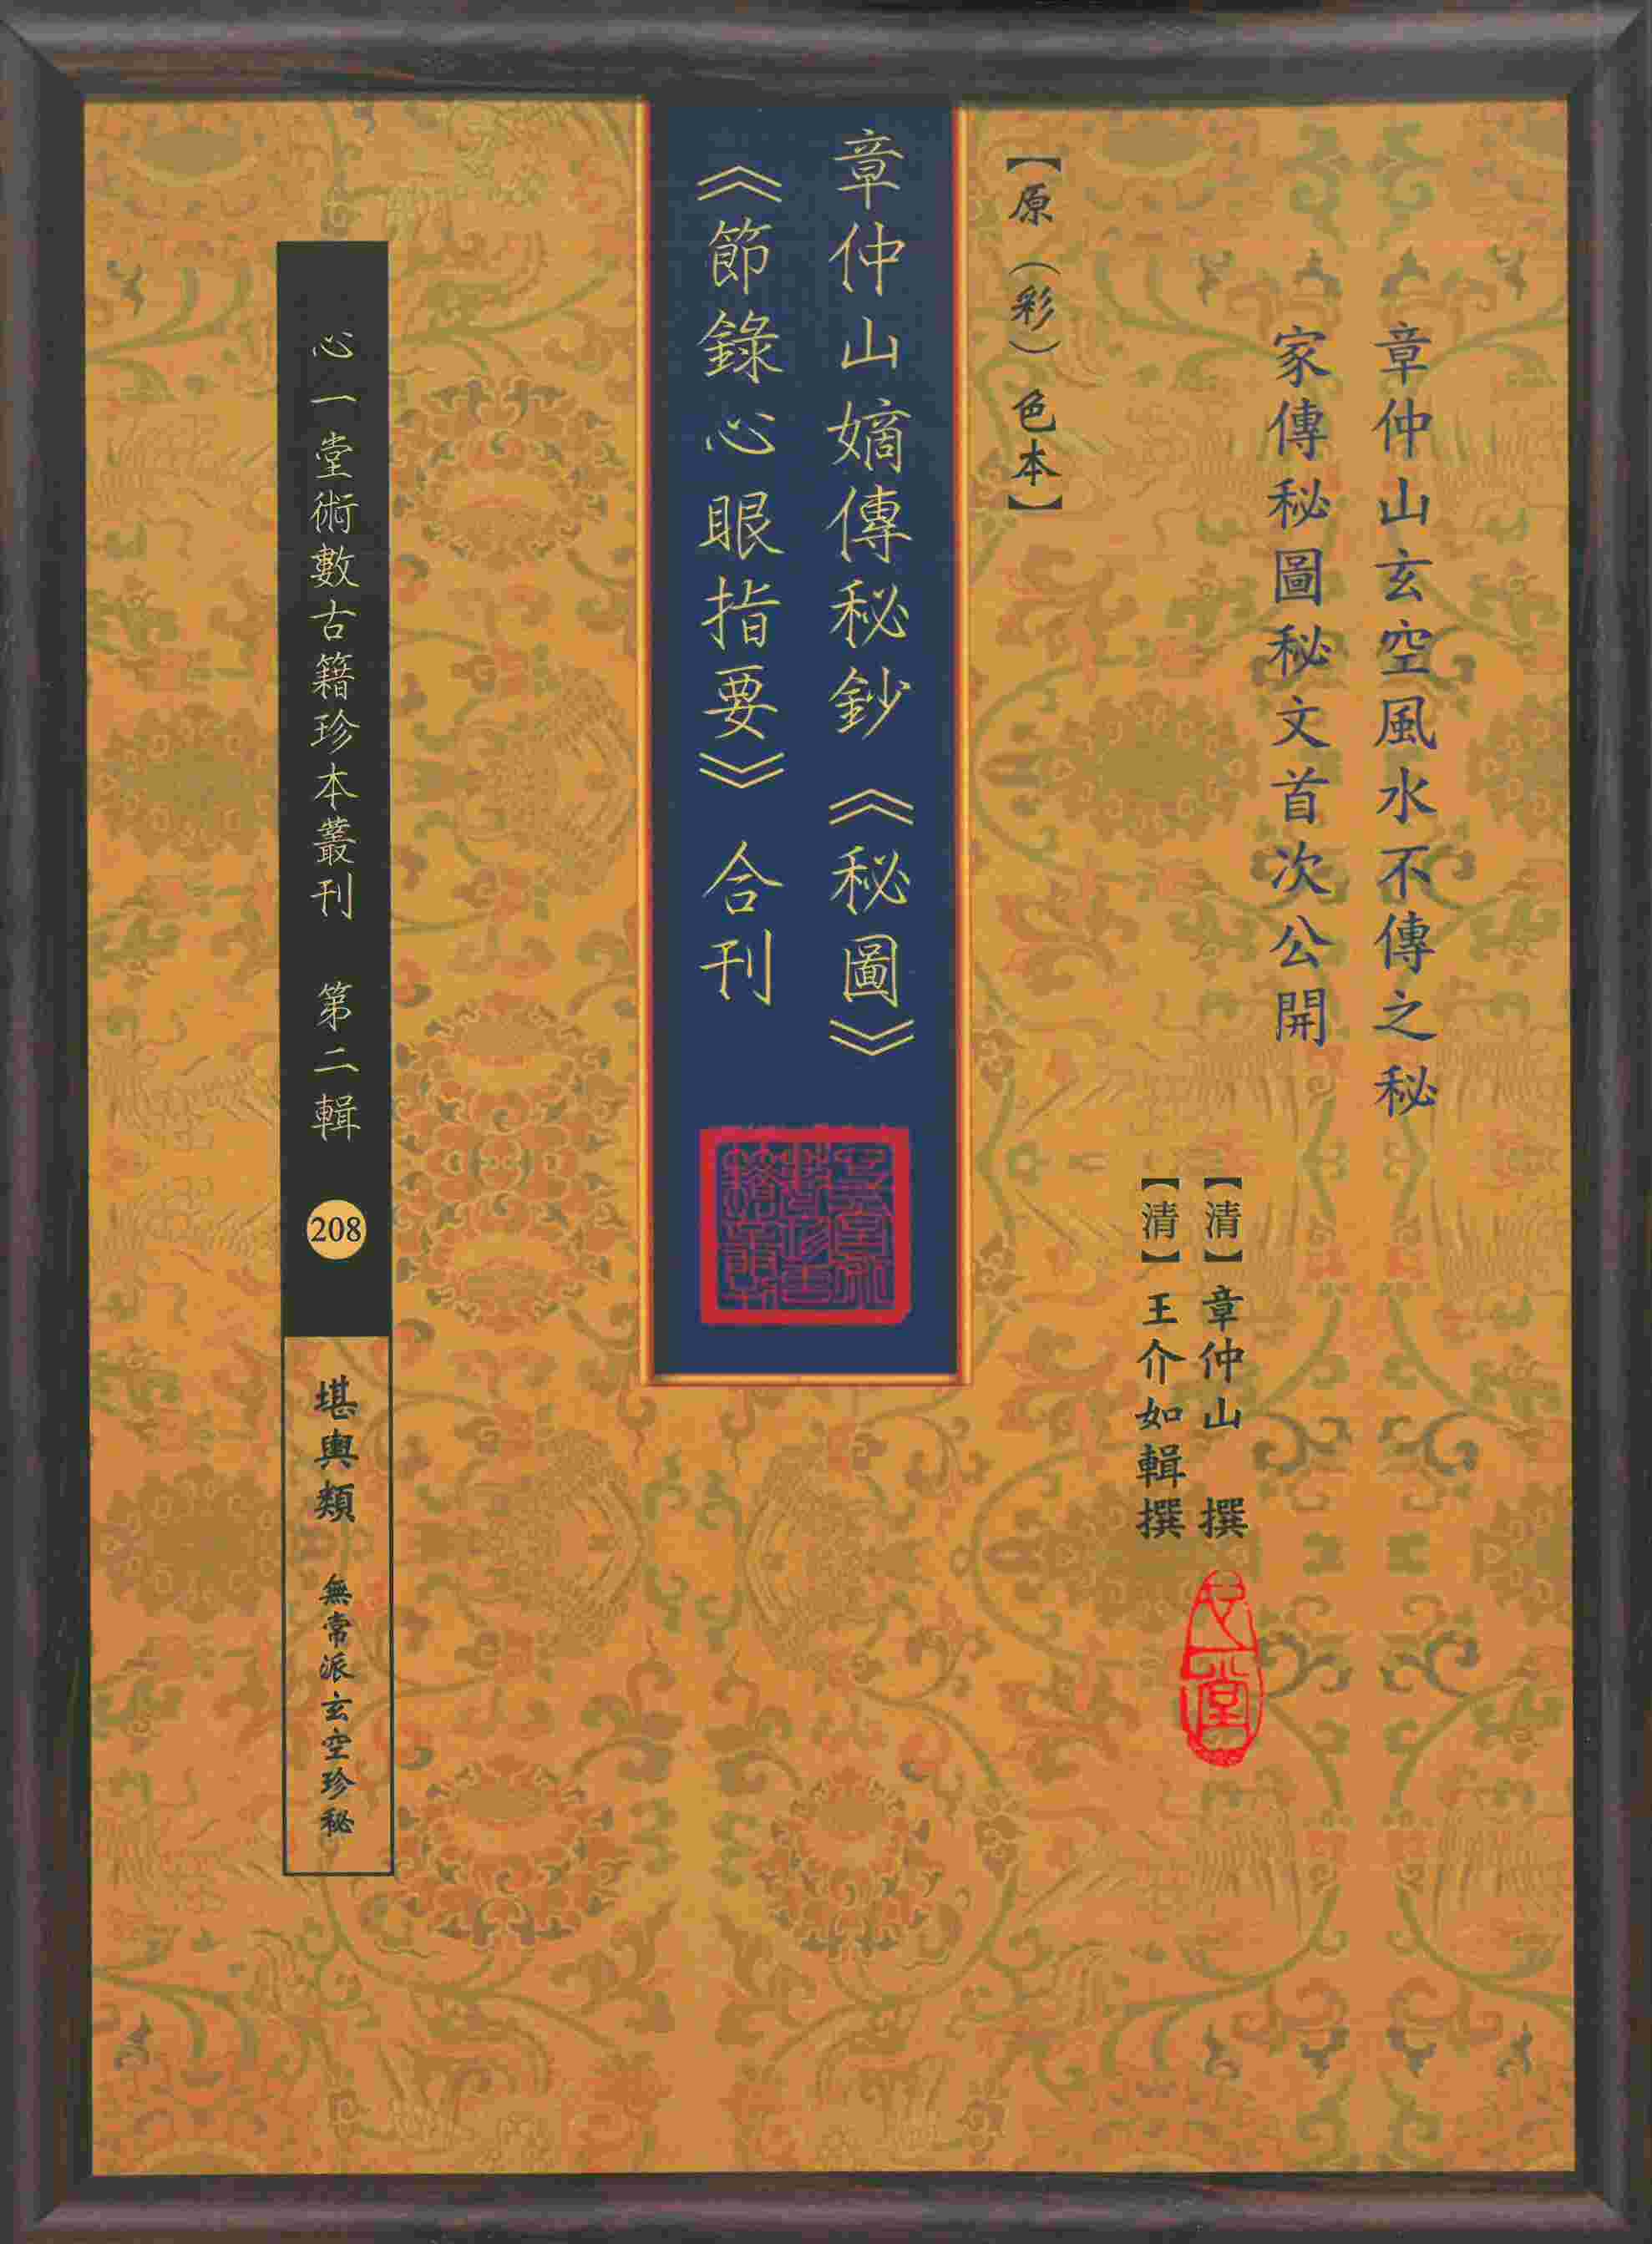 章仲山玄空風水不傳之秘
家傳秘圖秘文首次公開
【清】章仲山 撰
【清】王介如輯撰
【原（彩）色本】
章仲山嫡傳秘鈔《秘圖》
《節錄心眼指要》合刊
心一堂術數古籍珍本叢刊 第二輯
208
堪輿類 無常派玄空珍秘
心一堂